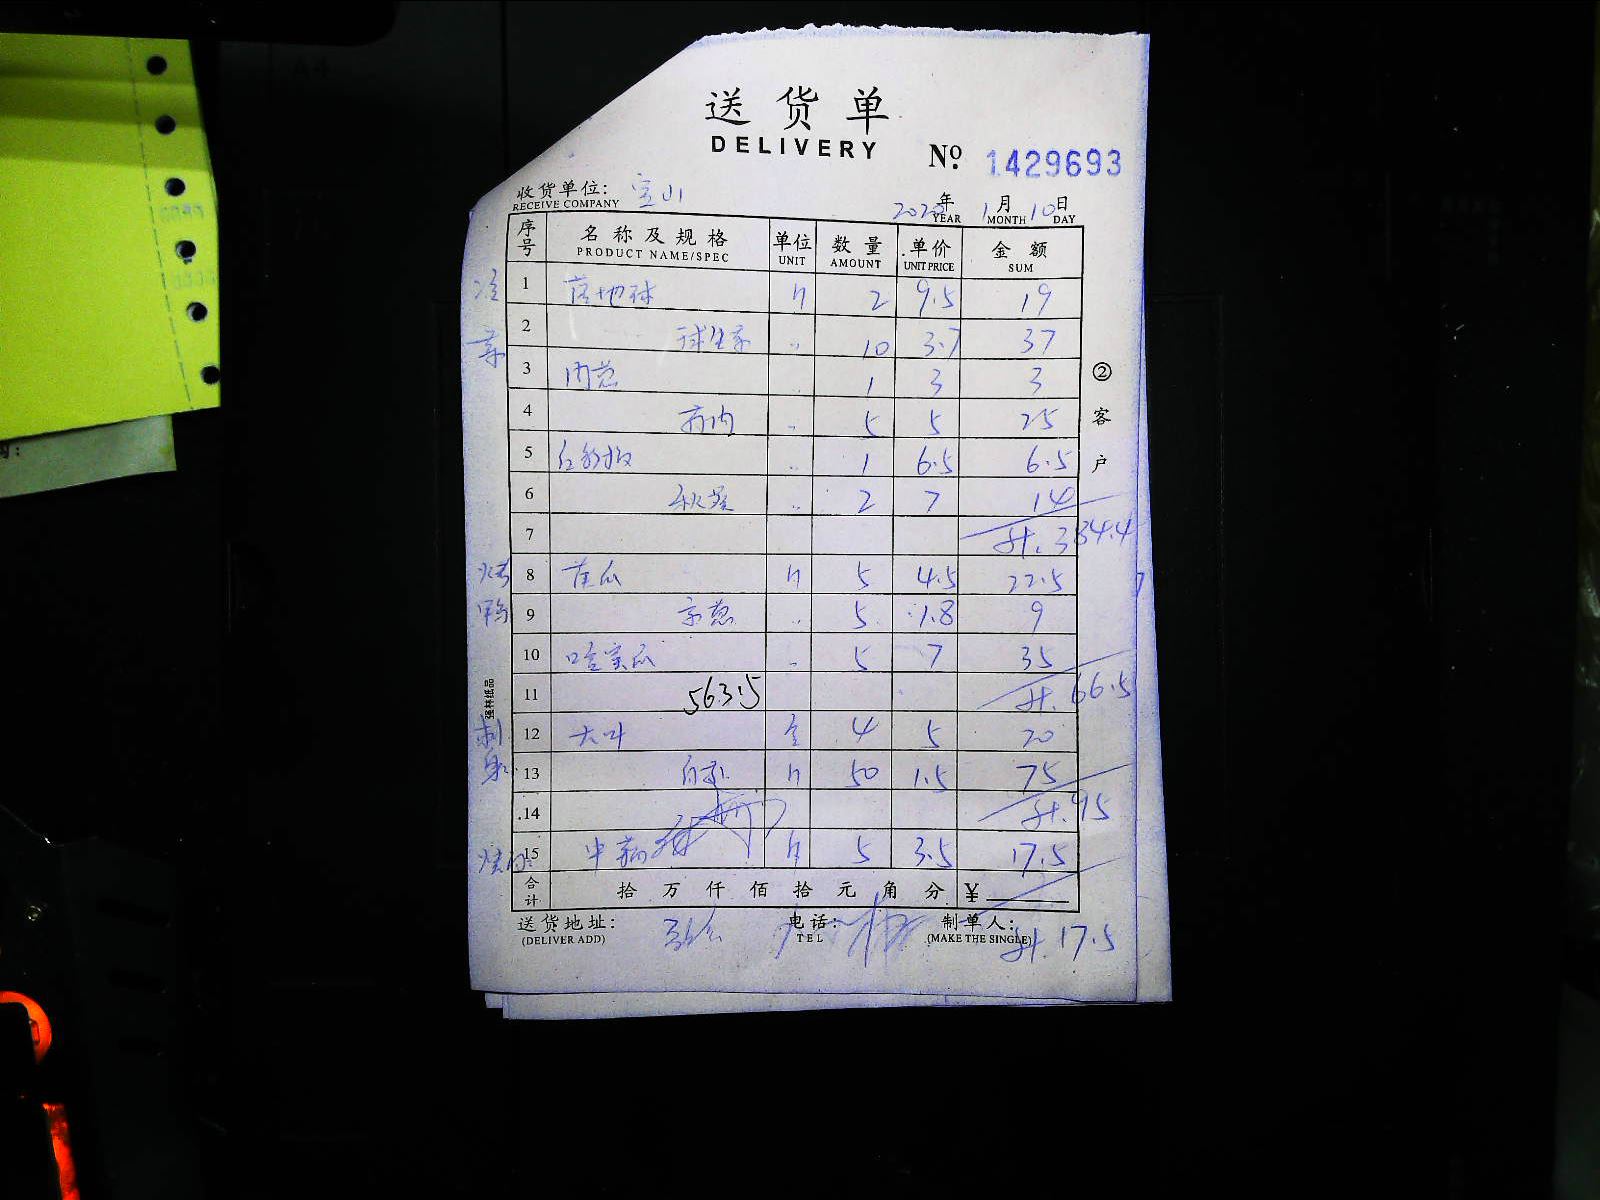 送货单
DELIVERY
№ 1429693
收货单位: 宝山
RECEIVE COMPANY
2020年 1月 10日
YEAR MONTH DAY
序号 名称及规格 单位 数量 单价 金额
PRODUCT NAME/SPEC UNIT AMOUNT UNIT PRICE SUM
1 2 9.5 19
2 球生菜 10 3.7 37
3 肉葱 1 3 3
4 5 5 25
5 红彩椒 1 6.5 6.5
6 秋葵 2 7 14
7 计. 384.4
烤鸭
8 黄瓜 5 4.5 22.5
9 京葱 5 1.8 9
10 哈蜜瓜 5 7 35
11 563.5 计. 66.5
刺身
12 大叶 4 5 20
13 50 1.5 75
14 计. 95
15 5 3.5 17.5
合计 拾 万 仟 佰 拾 元 角 分 ¥
送货地址: 电话: 制单人:
(DELIVER ADD) TEL (MAKE THE SINGLE)
计. 17.5
② 客户
强林纸品